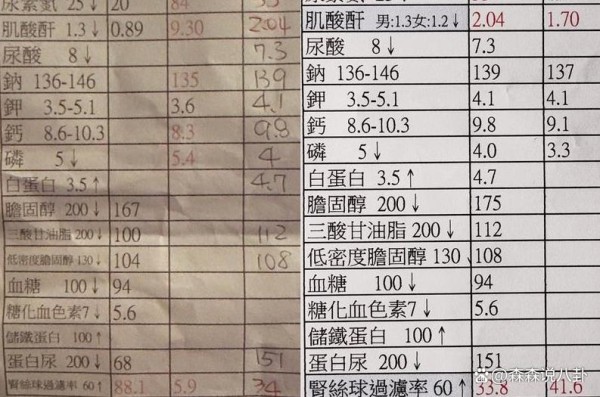 尿素氮 25↓ 20 84
肌酸酐 1.3↓ 0.89 9.30 2.04
尿酸 8↓ 7.3
鈉 136-146 135 139
鉀 3.5-5.1 3.6 4.1
鈣 8.6-10.3 8.3 9.8
磷 5↓ 5.4 4
白蛋白 3.5↑ 4.7
膽固醇 200↓ 167
三酸甘油脂 200↓ 100 112
低密度膽固醇 130↓ 104 108
血糖 100↓ 94
糖化血色素7↓ 5.6
儲鐵蛋白 100↑
蛋白尿 200↓ 68 151
腎絲球過濾率 60↑ 88.1 5.9 34
肌酸酐 男:1.3女:1.2↓ 2.04 1.70
尿酸 8↓ 7.3
鈉 136-146 139 137
鉀 3.5-5.1 4.1 4.1
鈣 8.6-10.3 9.8 9.1
磷 5↓ 4.0 3.3
白蛋白 3.5↑ 4.7
膽固醇 200↓ 175
三酸甘油脂 200↓ 112
低密度膽固醇 130↓ 108
血糖 100↓ 94
糖化血色素7↓ 5.6
儲鐵蛋白 100↑
蛋白尿 200↓ 151
腎絲球過濾率 60↑ 33.8 41.6
森森说八卦